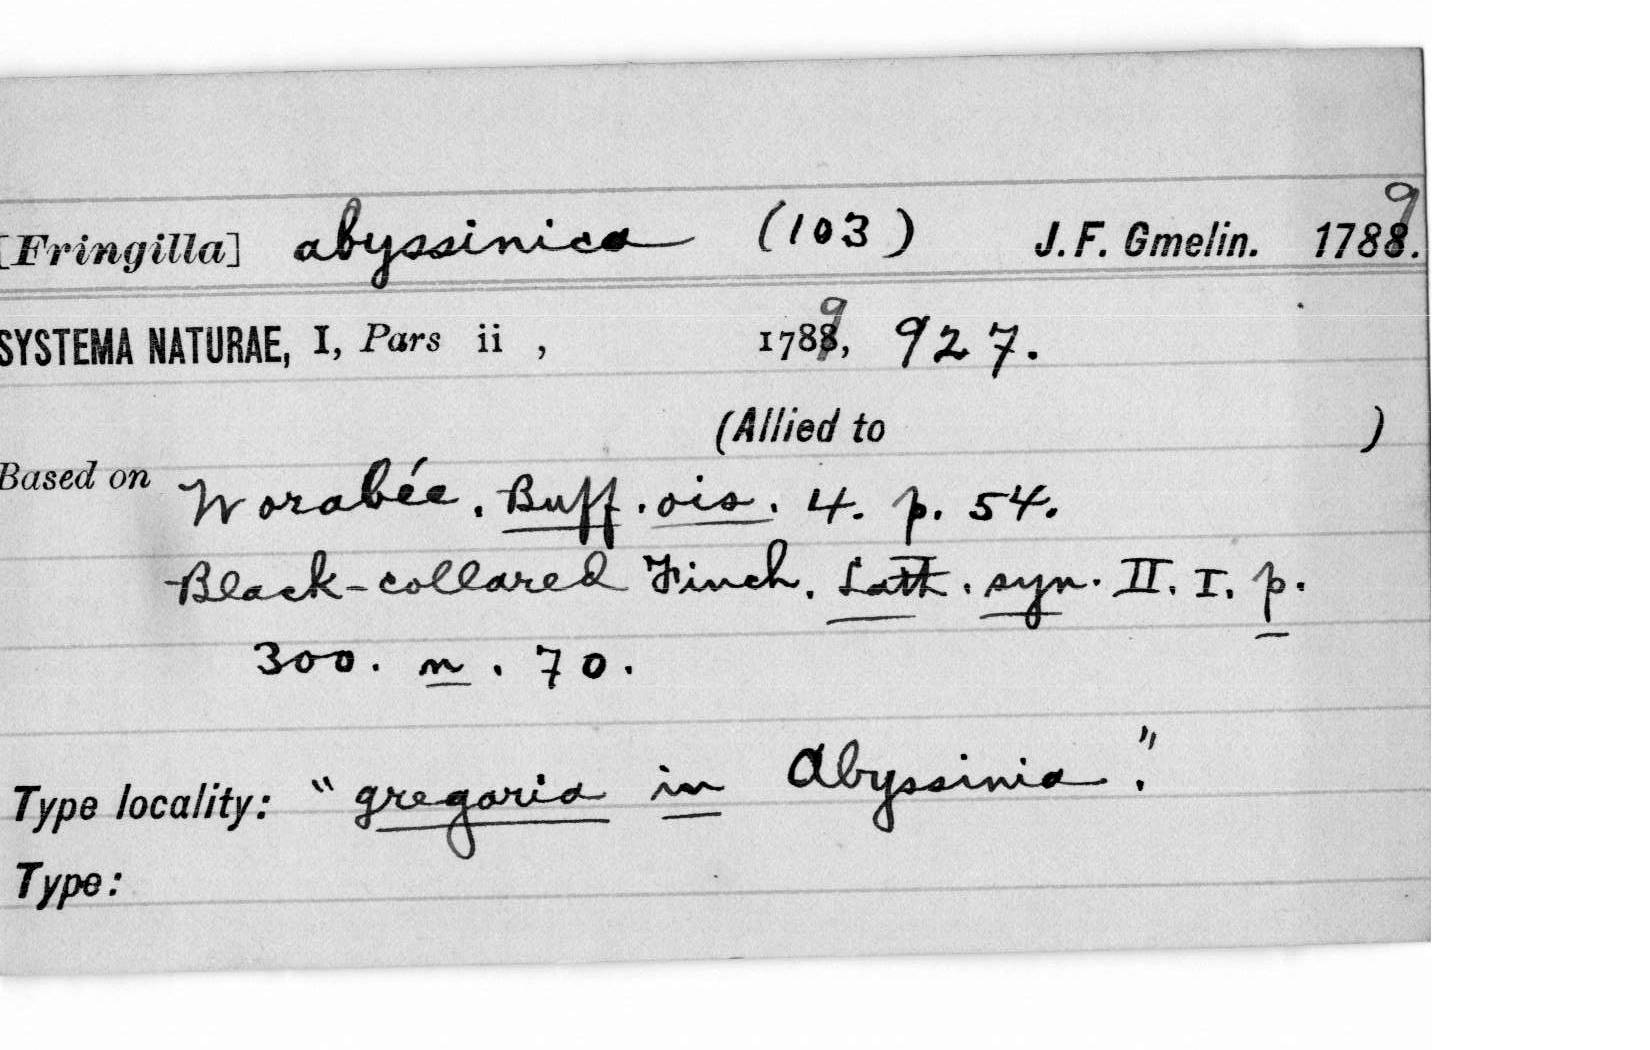 [Fringilla] abyssinica (103) J. F. Gmelin. 1789.
SYSTEMA NATURAE, I, Pars ii , 1789, 927.
(Allied to )
Based on Worabée. Buff. ois. 4. p. 54.
Black-collared Finch. Lath. syn. II. I. p.
300. n. 70.
Type locality: "gregaria in Abyssinia."
Type: